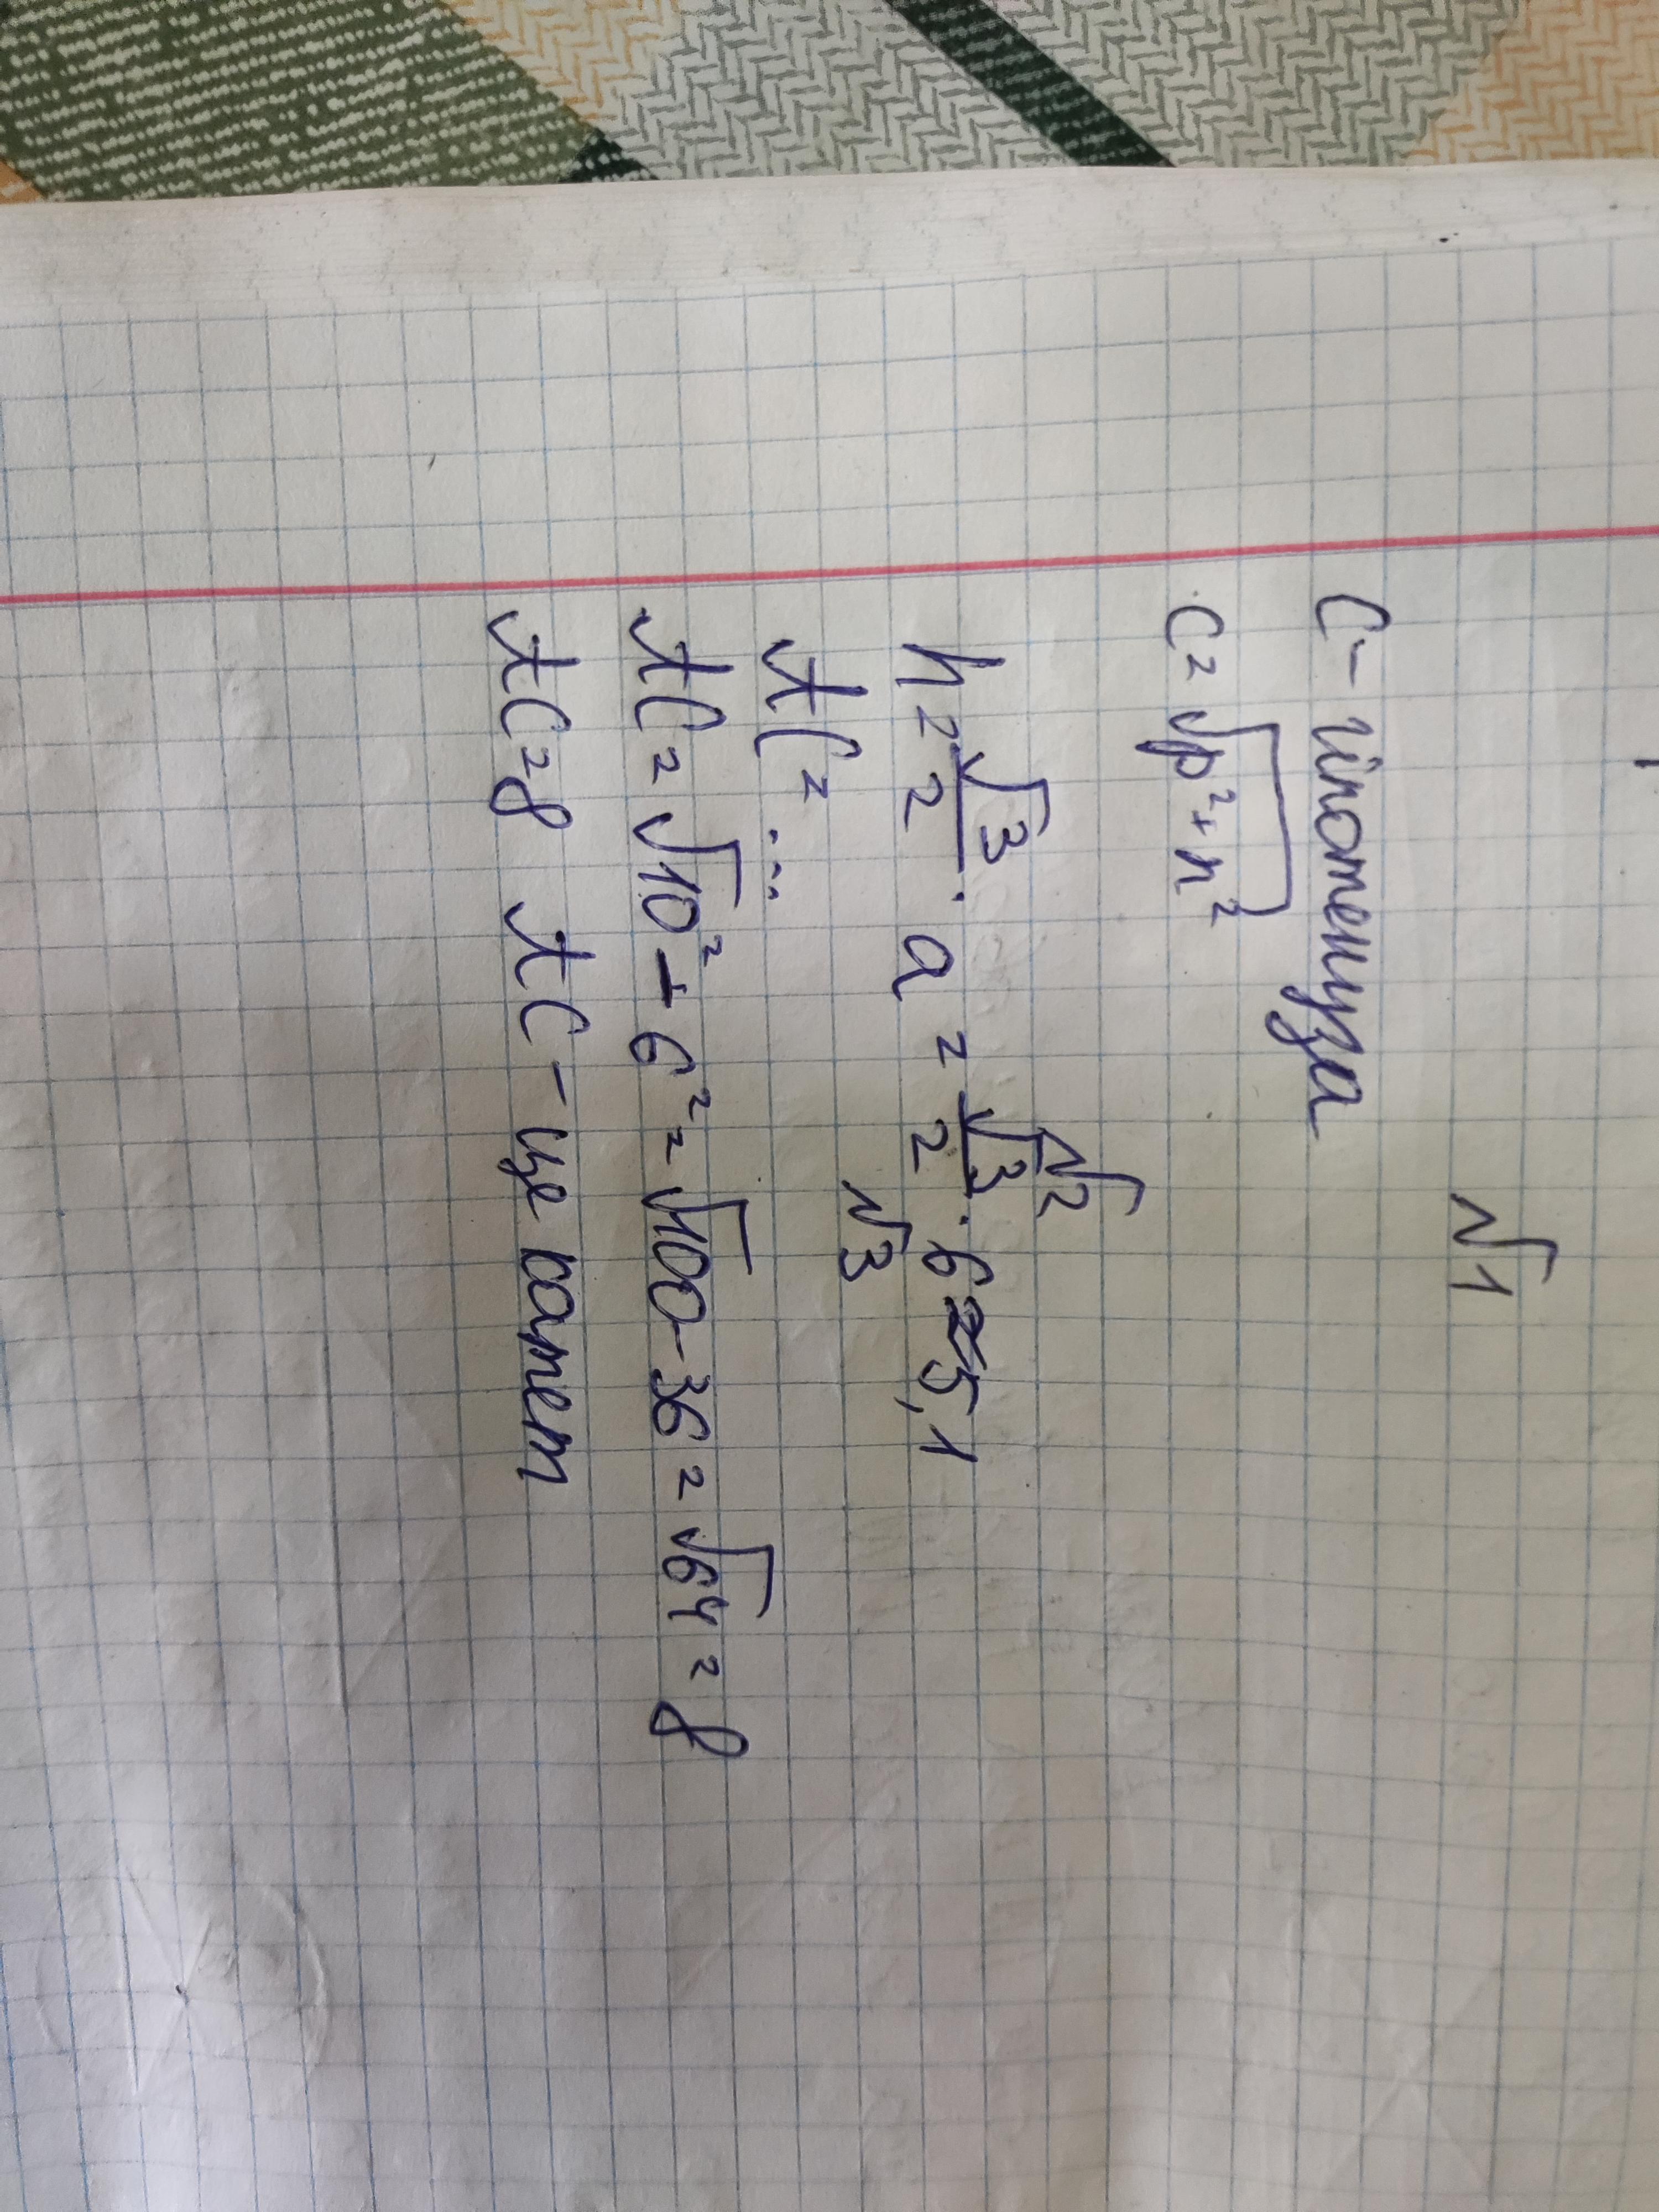 №1
С - гіпотенуза
c = √p²+n²
№2
h = √3/2 · a = √3/2 · 6 = 5,1
№3
AC = ...
AC = √10² - 6² = √100 - 36 = √64 = 8
AC = 8 AC - це катет